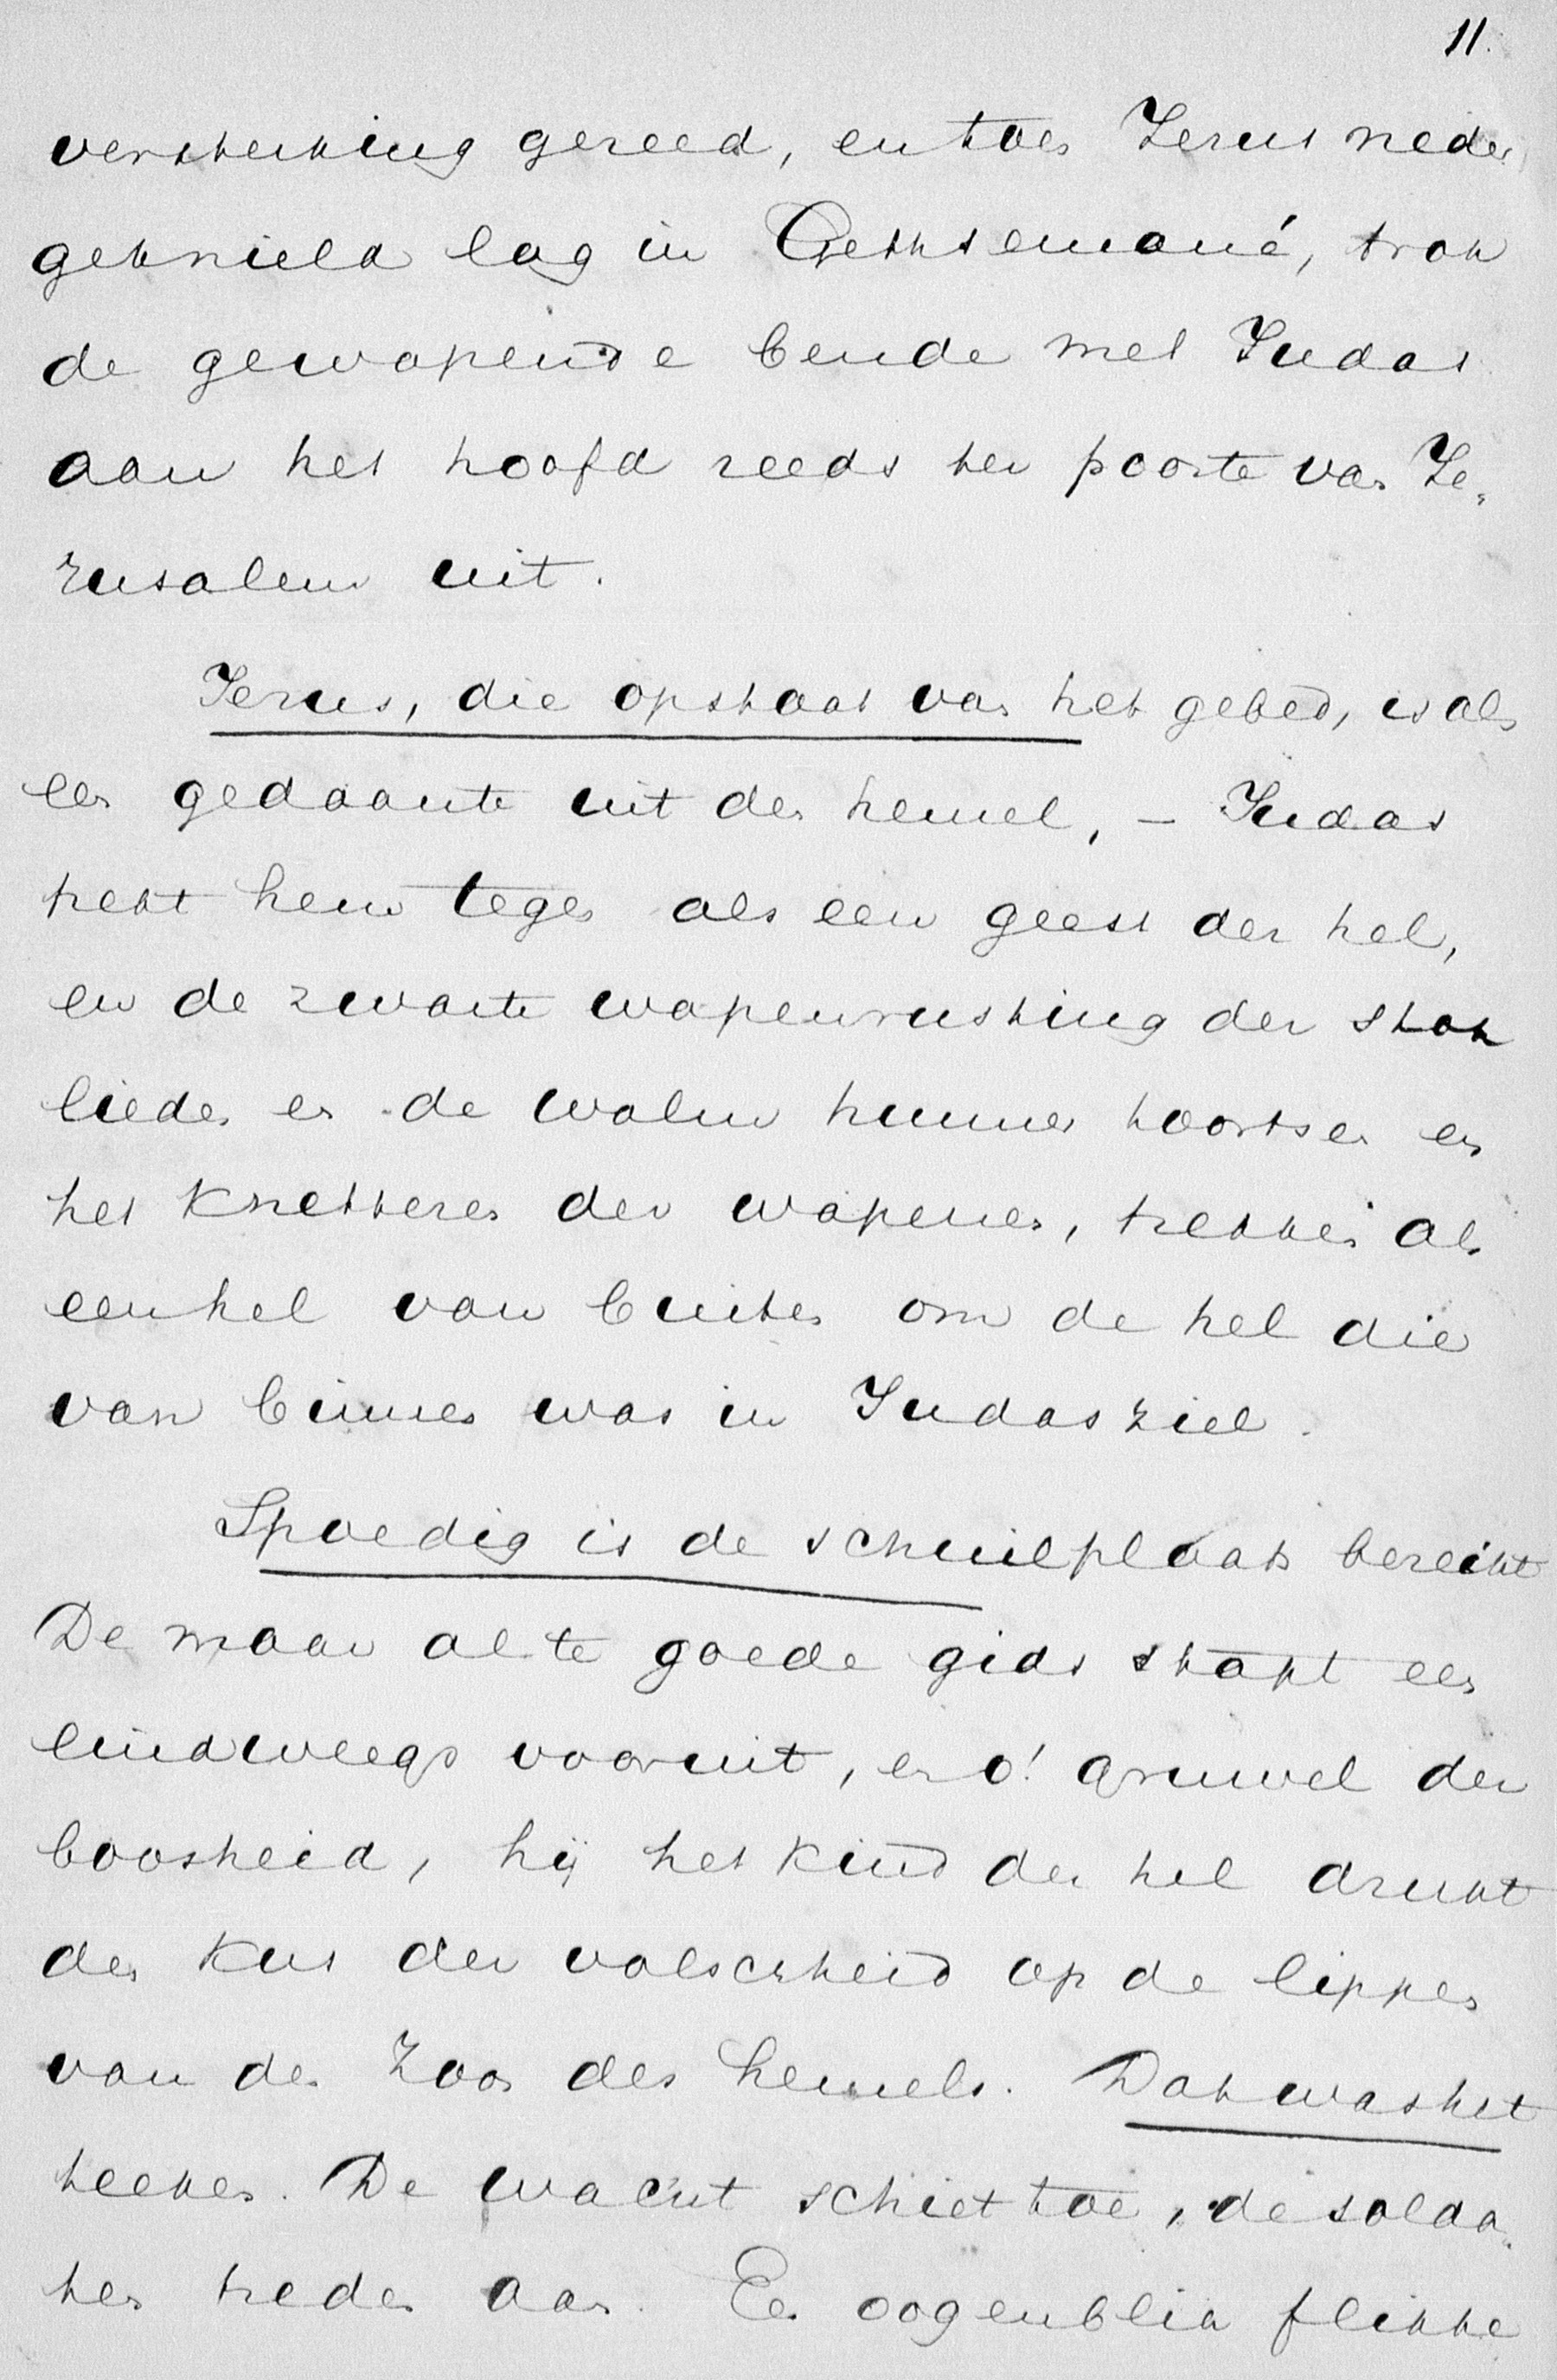 11.
versterking gereed, en toen Jezus neder
geknield lag in Gethsemané, trok
de gewapende bende met Judas
aan het hoofd reeds ter poorte van Je-
ruzalem uit.
Jezus, die opstaat van het gebed, is als
een gedaante uit den hemel, – Judas
trekt hem tegen als een geest der hel,
en de zwarte wapenrusting der stok
lieden en de walm hunner toortsen en
het knetteren der wapenen, trekken als
een hel van buiten om de hel die
van binnen was in Judas ziel.
Spoedig is de schuilplaats bereikt
De maar al te goede gids stapt een
eindweegs vooruit, en o! gruwel der
boosheid, hij het kind der hel drukt
den kus der valscheid op de lippen
van den Zoon des hemels. Dat was het
teeken. De wacht schiet toe, de solda-
ten treden aan. Een oogenblik flikke